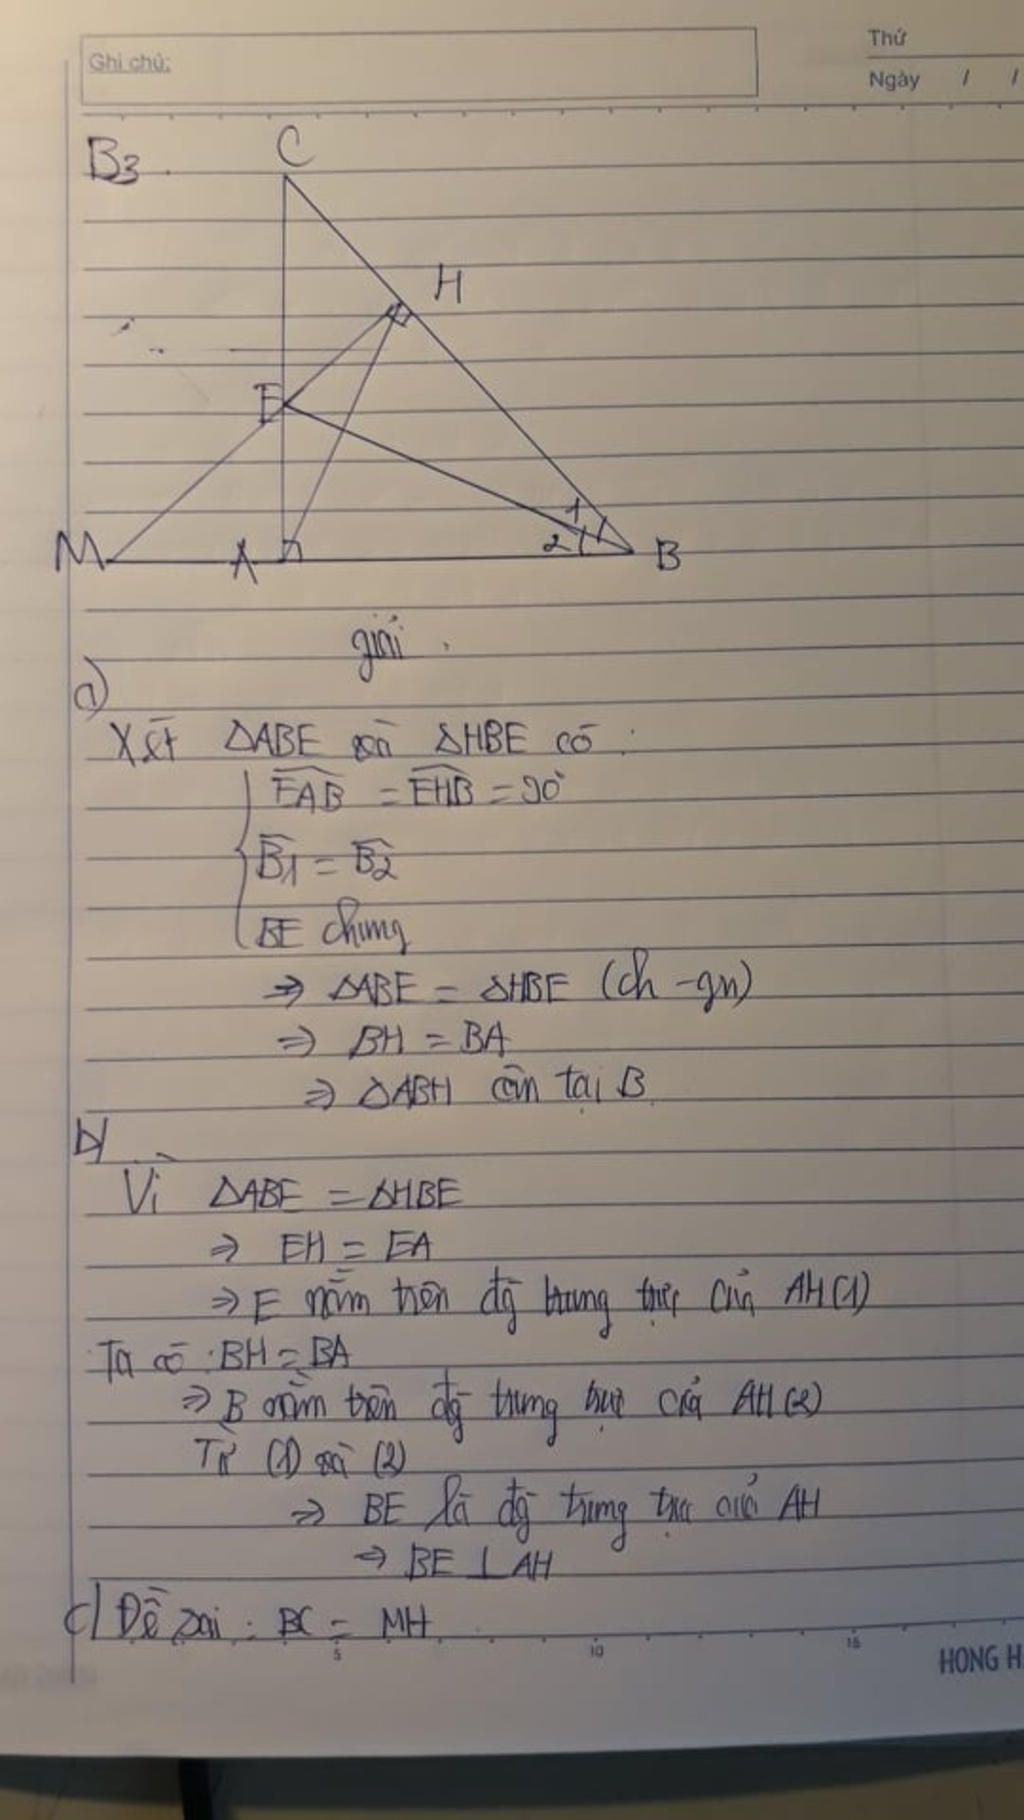 Ghi chú:
Thứ
Ngày / /
B3.
C
H
E
M A B
1
2
giải.
a)
Xét ΔABE và ΔHBE có:
EAB = EHB = 90°
B1 = B2
BE chung
⇒ ΔABE = ΔHBE (ch - gn)
⇒ BH = BA
⇒ ΔABH cân tại B
b)
Vì ΔABE = ΔHBE
⇒ EH = EA
⇒ E nằm trên đg trung trực của AH (1)
Ta có: BH = BA
⇒ B nằm trên đg trung trực của AH (2)
Từ (1) và (2)
⇒ BE là đg trung trực của AH
⇒ BE ⊥ AH
c) Đề sai: BC = MH
5 10 15
HONG H